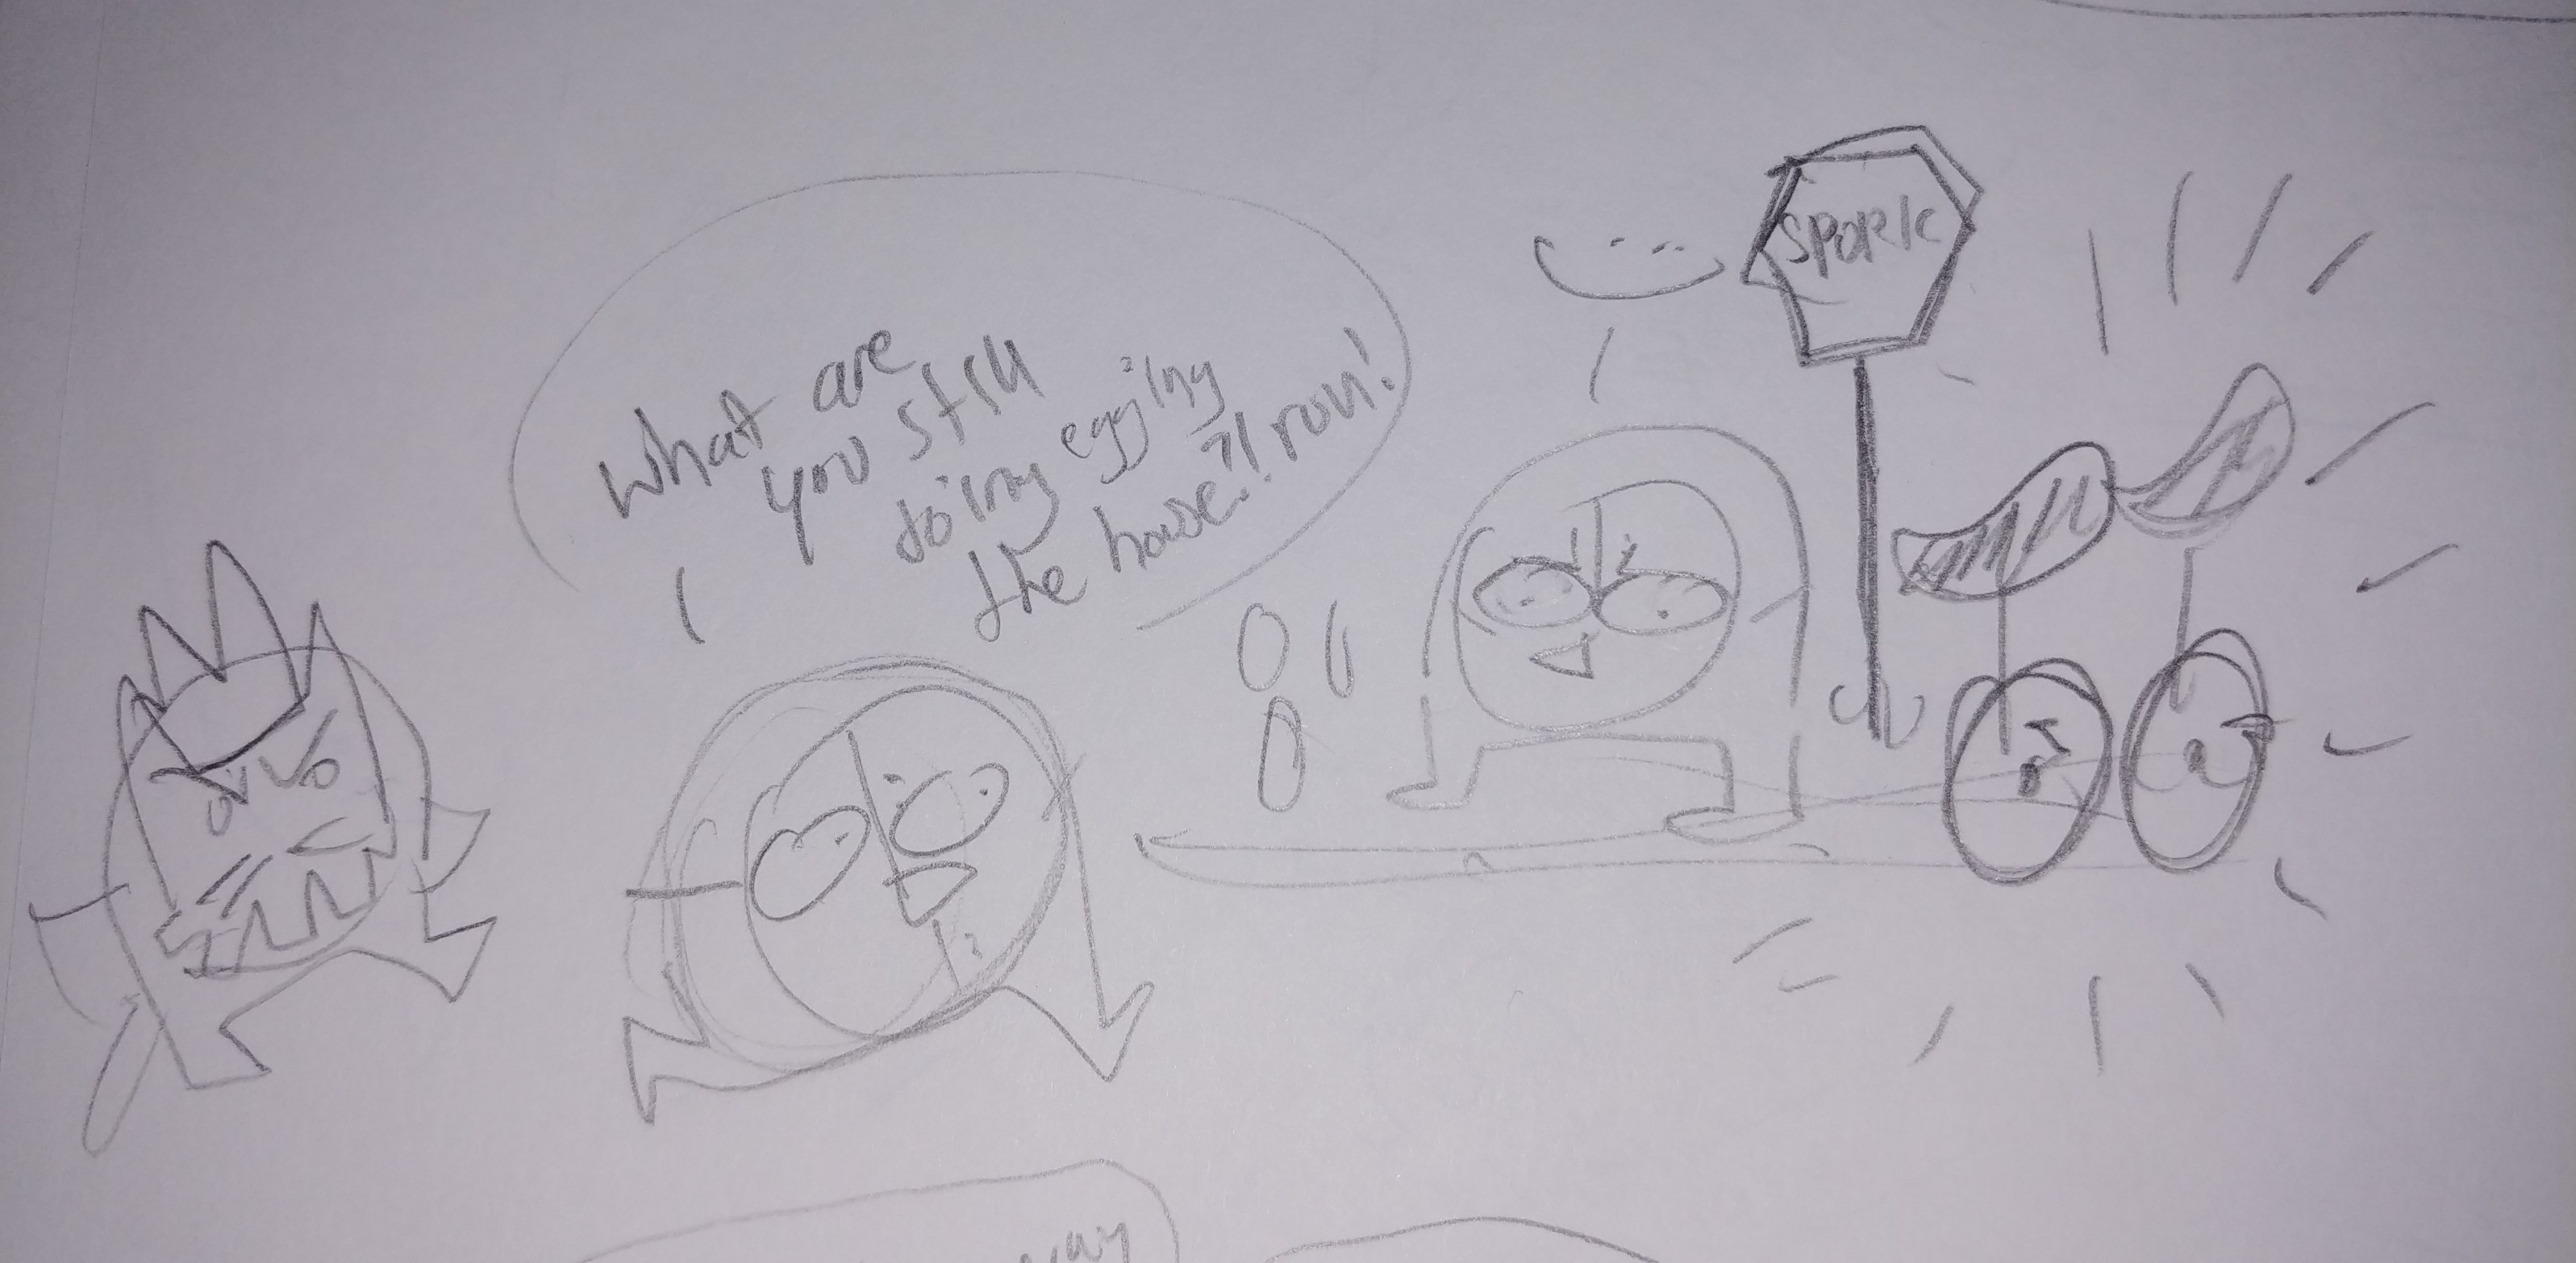 What are
you still
doing egging
the house?! run!
SPORK
way